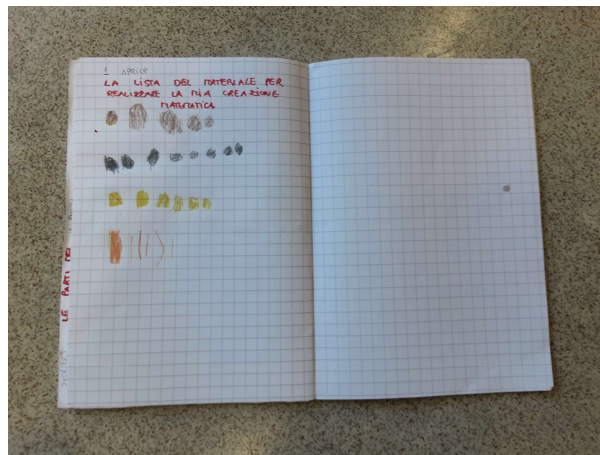 1 APRILE
LA LISTA DEL MATERIALE PER
REALIZZARE LA MIA CREAZIONE
MATEMATICA
LE PARTI DEI